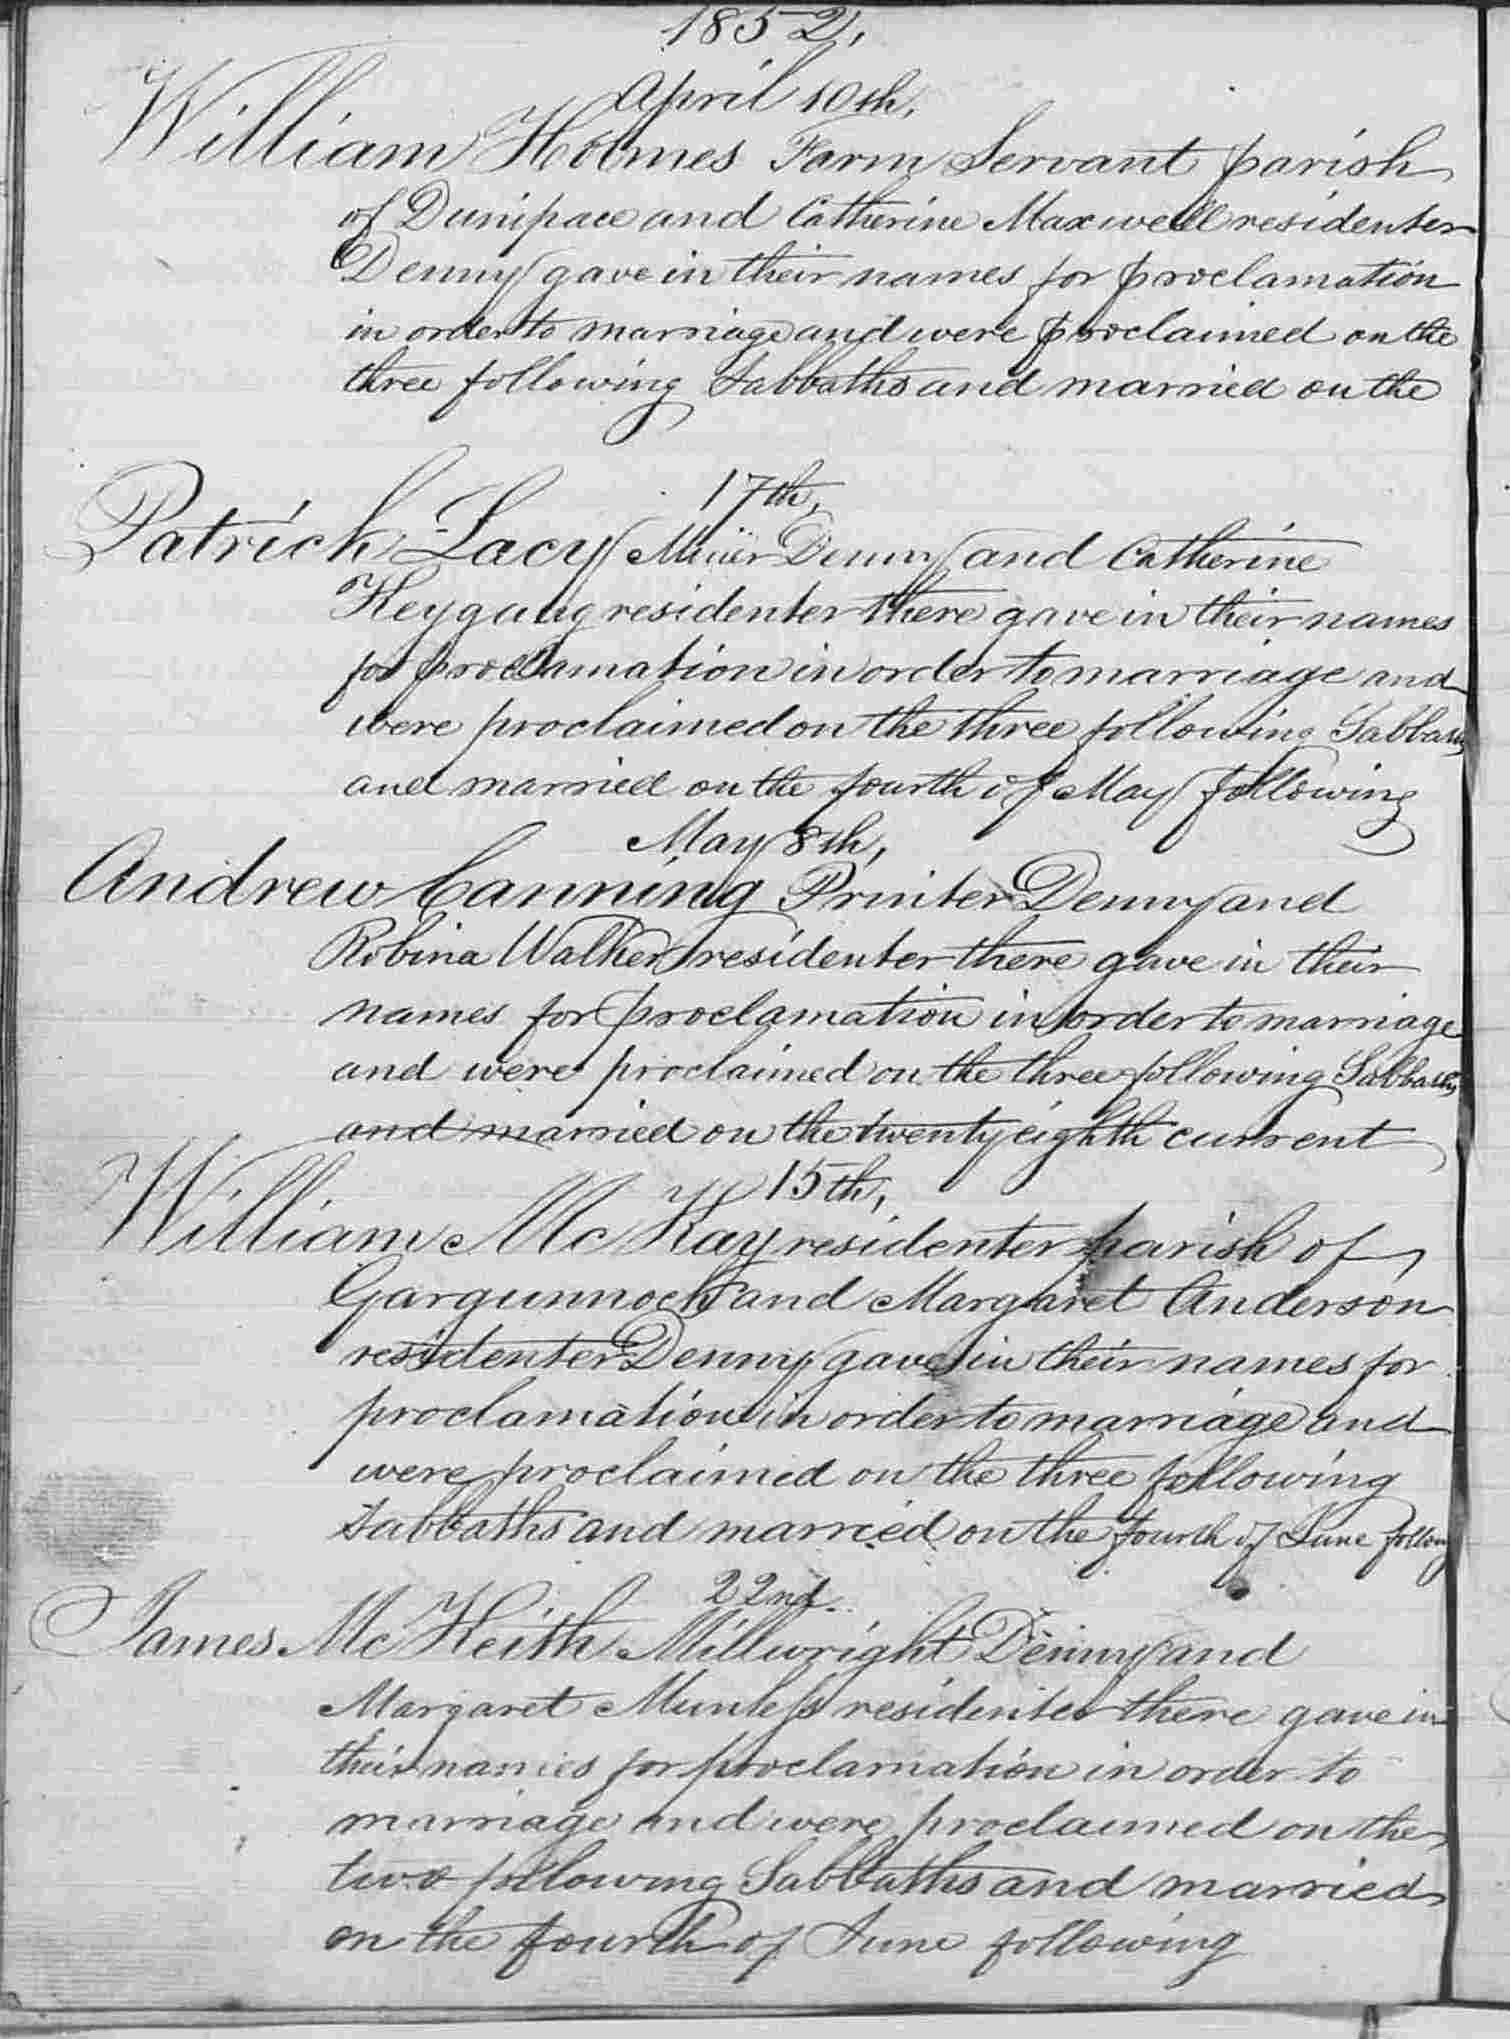 1852,
April 10th,
William Holmes Farm Servant parish
of Dunipace and Catherine Maxwell residenter
Denny gave in their names for proclamation
in order to marriage and were proclaimed on the
three following Sabbaths and married on the
17th,
Patrick Lacy Miner Denny and Catherine
residenter there gave in their names
for proclamation in order to marriage and
were proclaimed on the three following Sabbaths
and married on the fourth of May following
May 8th,
Andrew Canning Printer Denny and
Robina Walker residenter there gave in their
names for proclamation in order to marriage
and were proclaimed on the three following Sabbaths
and married on the twenty eighth current
15th,
William McKay residenter parish of
Gargunnock and Margaret Anderson
residenter Denny gave in their names for
proclamation in order to marriage and
were proclaimed on the three following
Sabbaths and married on the fourth of June follow
22nd.
James McKeith Millwright Denny and
Margaret residenter there gave in
their names for proclamation in order to
marriage and were proclaimed on the
two following Sabbaths and married
on the fourth of June following